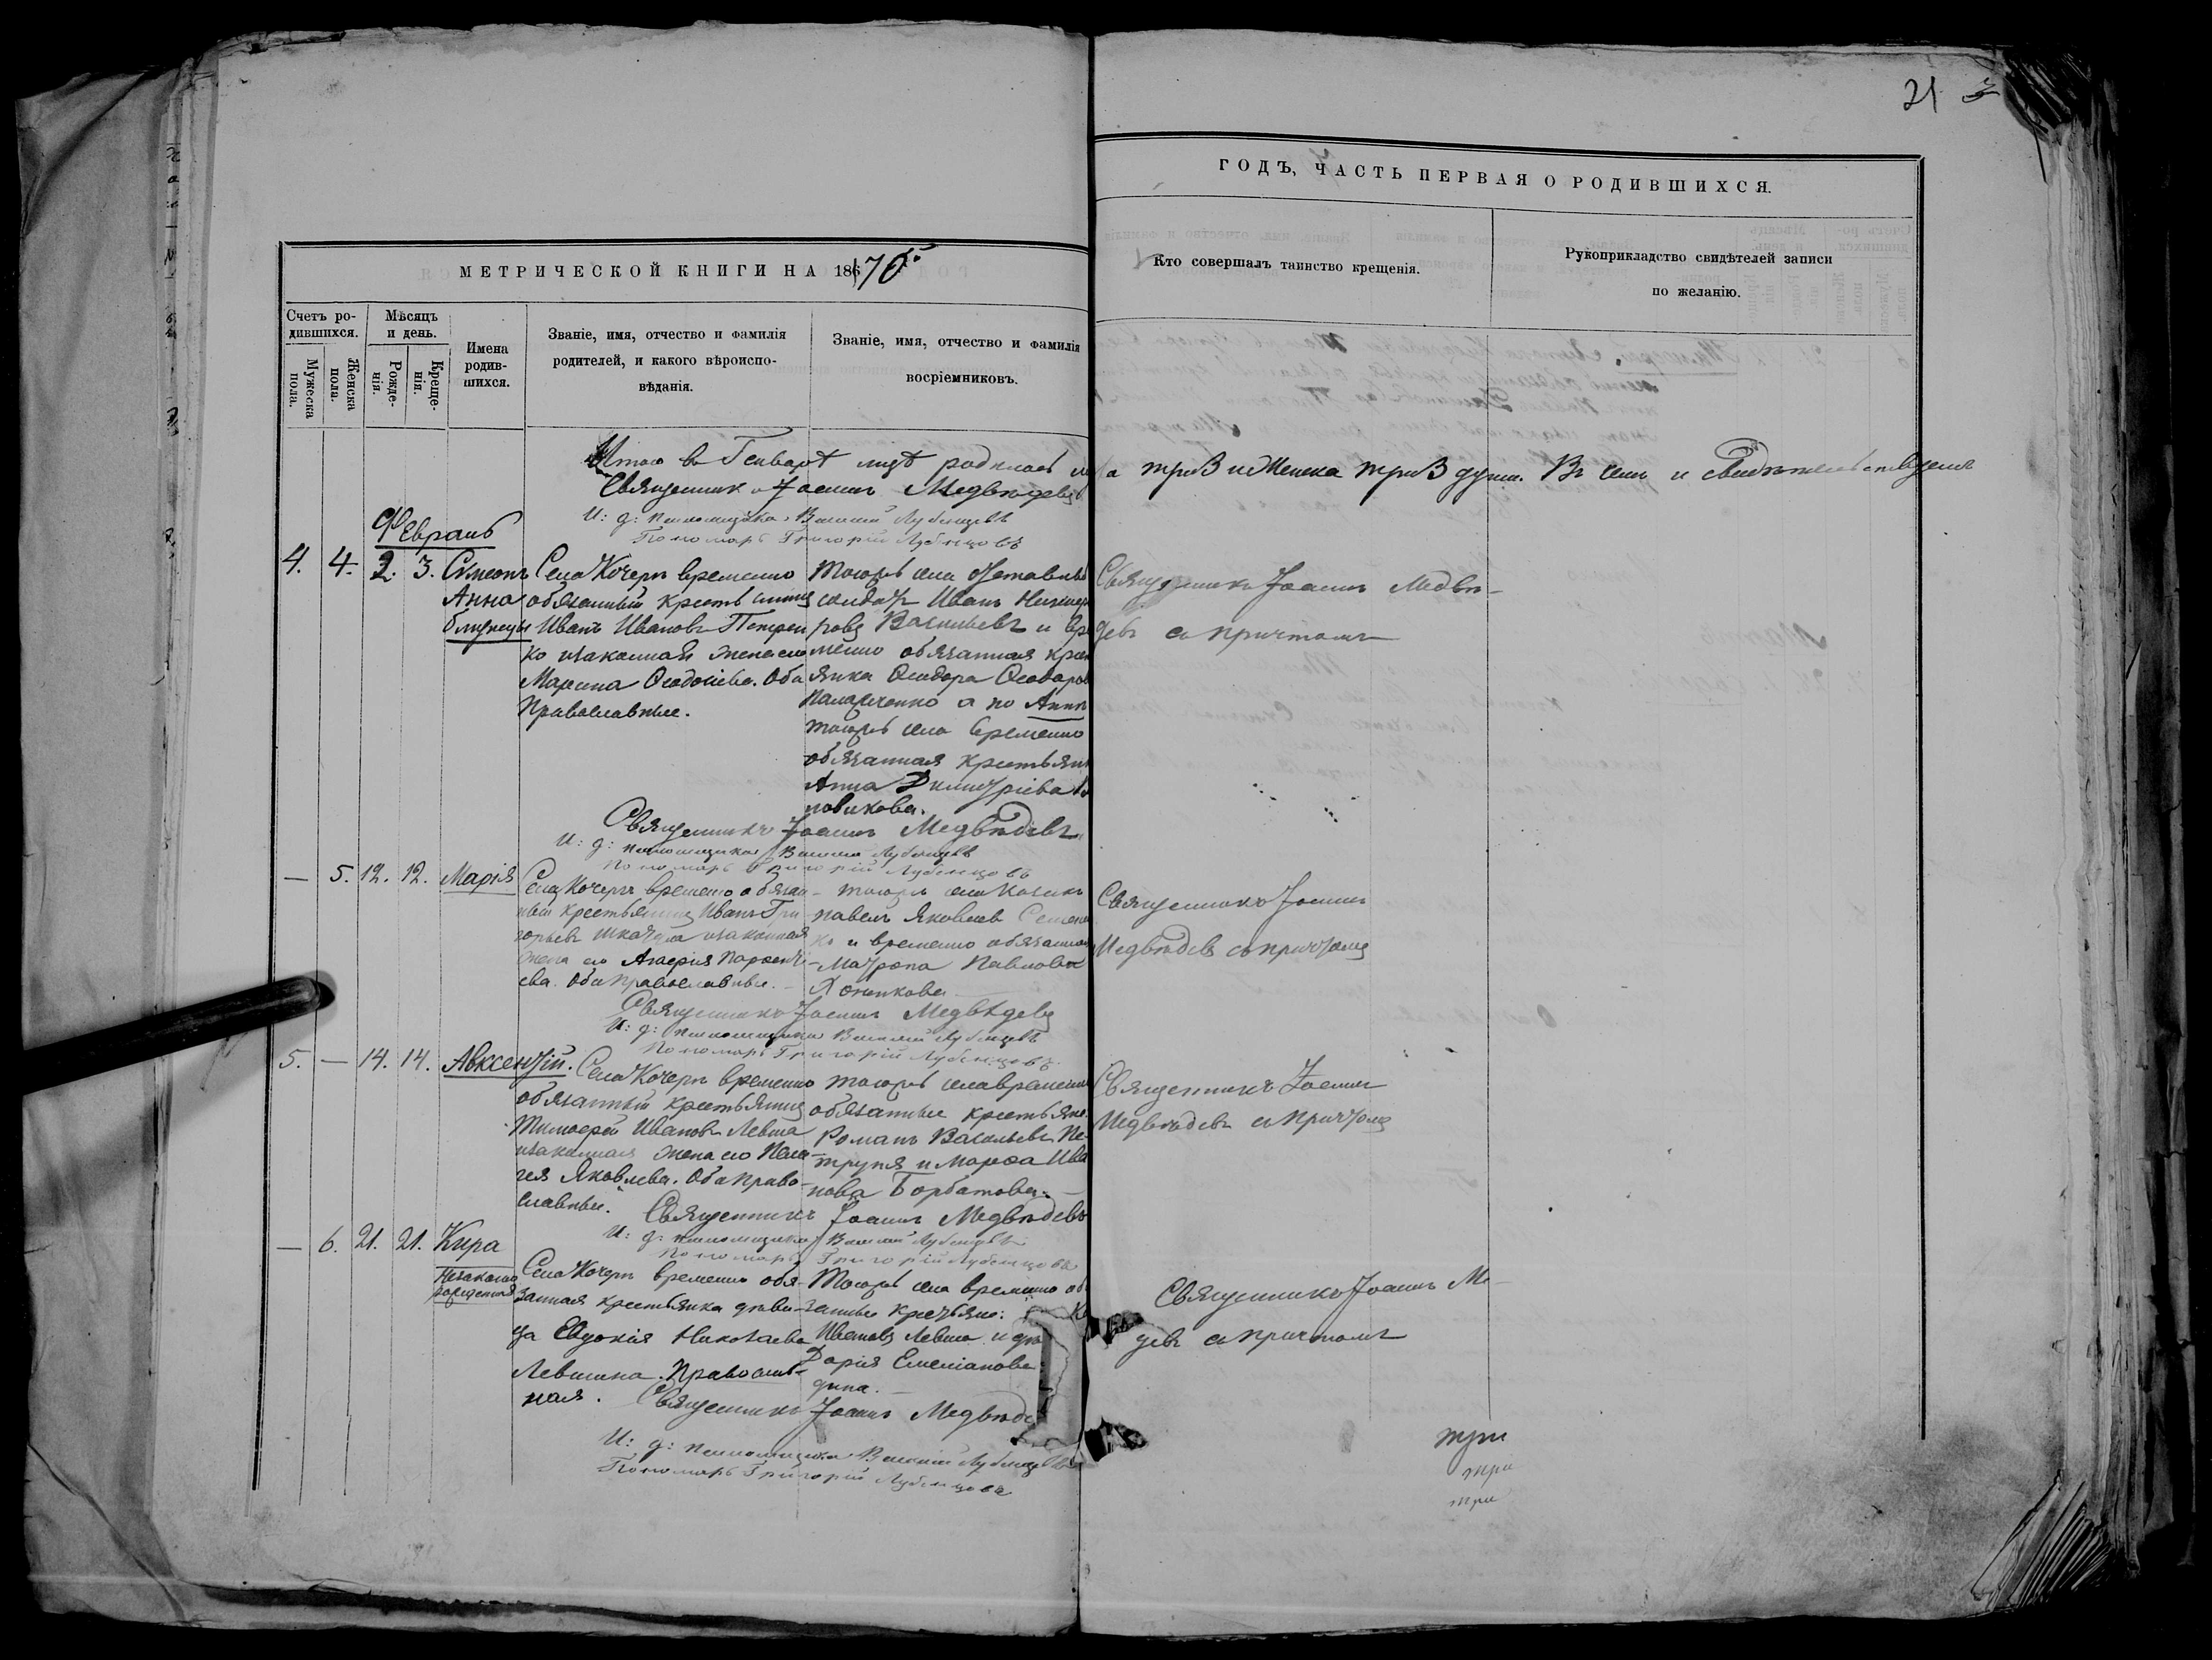 21
ГОДЪ, ЧАСТЬ ПЕРВАЯ О РОДИВШИХСЯ.
МЕТРИЧЕСКОЙ КНИГИ НА 1870
Счетъ родившихся.
Мужеска пола.
Женска пола.
Мѣсяцъ и день.
Рожденія.
Крещенія.
Имена родившихся.
Званіе, имя, отчество и фамилія
родителей, и какого вѣроиспо-
вѣданія.
Званіе, имя, отчество и фамилія
воспріемниковъ.
Кто совершалъ таинство крещенія.
Рукоприкладство свидѣтелей записи
по желанію.
Итого въ Генварѣ родилось три 3 и Женска три 3 душъ. Въ чемъ и
Священникъ Іоаннъ Медвѣдевъ
И: д: псаломщика Василій Лубенцовъ
Пономарь Григорій Лубенцовъ
Февраль
4. 4. 2. 3. Симеонъ
Анна
близнецы
Села Кочергъ временно
обязанный крестьянинъ
Иванъ Ивановъ Петрен
ко и законная жена его
Марина Ѳеодосіева. Оба
Православные.
Тогожъ села отставный
солдатъ Иванъ Никифо
ровъ Васильевъ и вре
менно обязанная крес
янка Ѳеодора Ѳеодоро
Паларченко а по Аннѣ
тогожъ села временно
обязанная крестьян
Анна Димитріева
новикова.
Священникъ Іоаннъ Медвѣ-
девъ съ причтомъ
Священникъ Іоаннъ Медвѣдевъ
И: д: псаломщика Василій Лубенцовъ
Пономарь Григорій Лубенцовъ
— 5. 12. 12. Марія
Села Кочергъ временно обязан-
ный крестьянинъ Иванъ Гри
горьевъ и законная
жена его Агафія Парѳеніе
ева. Оба православные. —
тогожъ села Казакъ
Павелъ Яковлев Семен
ко и временно обязанная
Матрона Павлова
Священникъ Іоаннъ
Медвѣдевъ съ причтомъ
Священникъ Іоаннъ Медвѣдевъ
И: д: псаломщика Василій Лубенцовъ
Пономарь Григорій Лубенцовъ
5. — 14. 14. Авксентій.
Села Кочергъ временно
обязанный крестьянинъ
Тимофей Ивановъ Левша
и законная жена его Пела-
гея Яковлева. Оба право-
славные.
тогожъ села временно
обязанные крестьяне
Романъ Васильевъ Пе-
трупя и Марѳа Ива
нова Горбатова. —
Священникъ Іоаннъ
Медвѣдевъ съ причтомъ
Священникъ Іоаннъ Медвѣдевъ
И: д: псаломщика Василій Лубенцовъ
Пономарь Григорій Лубенцовъ
— 6. 21. 21. Кира
Незаконно
рожденная
Села Кочергъ временно обя-
занная крестьянка дѣви-
ца Евдокія Николаева
Левшина. Православ-
ная.
Тогожъ села временно об
занные крестьяне:
Ивановъ Левша и дѣ
Дарія Емеліанова
дина. —
Священникъ Іоаннъ Ме-
девъ съ причтомъ
Священникъ Іоаннъ Медвѣде
И: д: псаломщика Василій Лубенцовъ
Пономарь Григорій Лубенцовъ
три
три
три